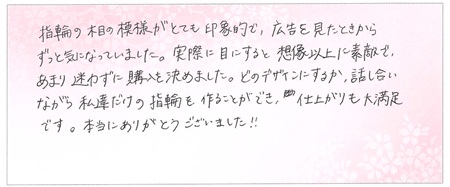 指輪の木目の模様がとても印象的で、広告を見たときから
ずっと気になっていました。実際に目にすると想像以上に素敵で、
あまり迷わずに購入を決めました。どのデザインにするか、話し合い
ながら私達だけの指輪を作ることができ、仕上がりも大満足
です。本当にありがとうございました!!